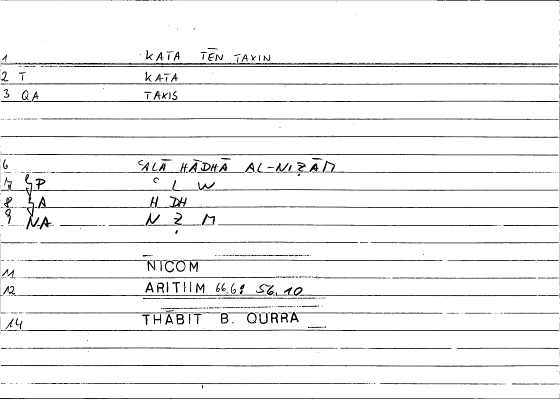 1 KATA TĒN TAXIN
2 T KATA
3 QA TAXIS
6 ʿALĀ HĀDHĀ AL-NIẒĀM
7 P ʿ L W
8 A H DH
9 NA N Ẓ M
11 NICOM
12 ARITHM 66,6; 56,10
14 THĀBIT B. QURRA